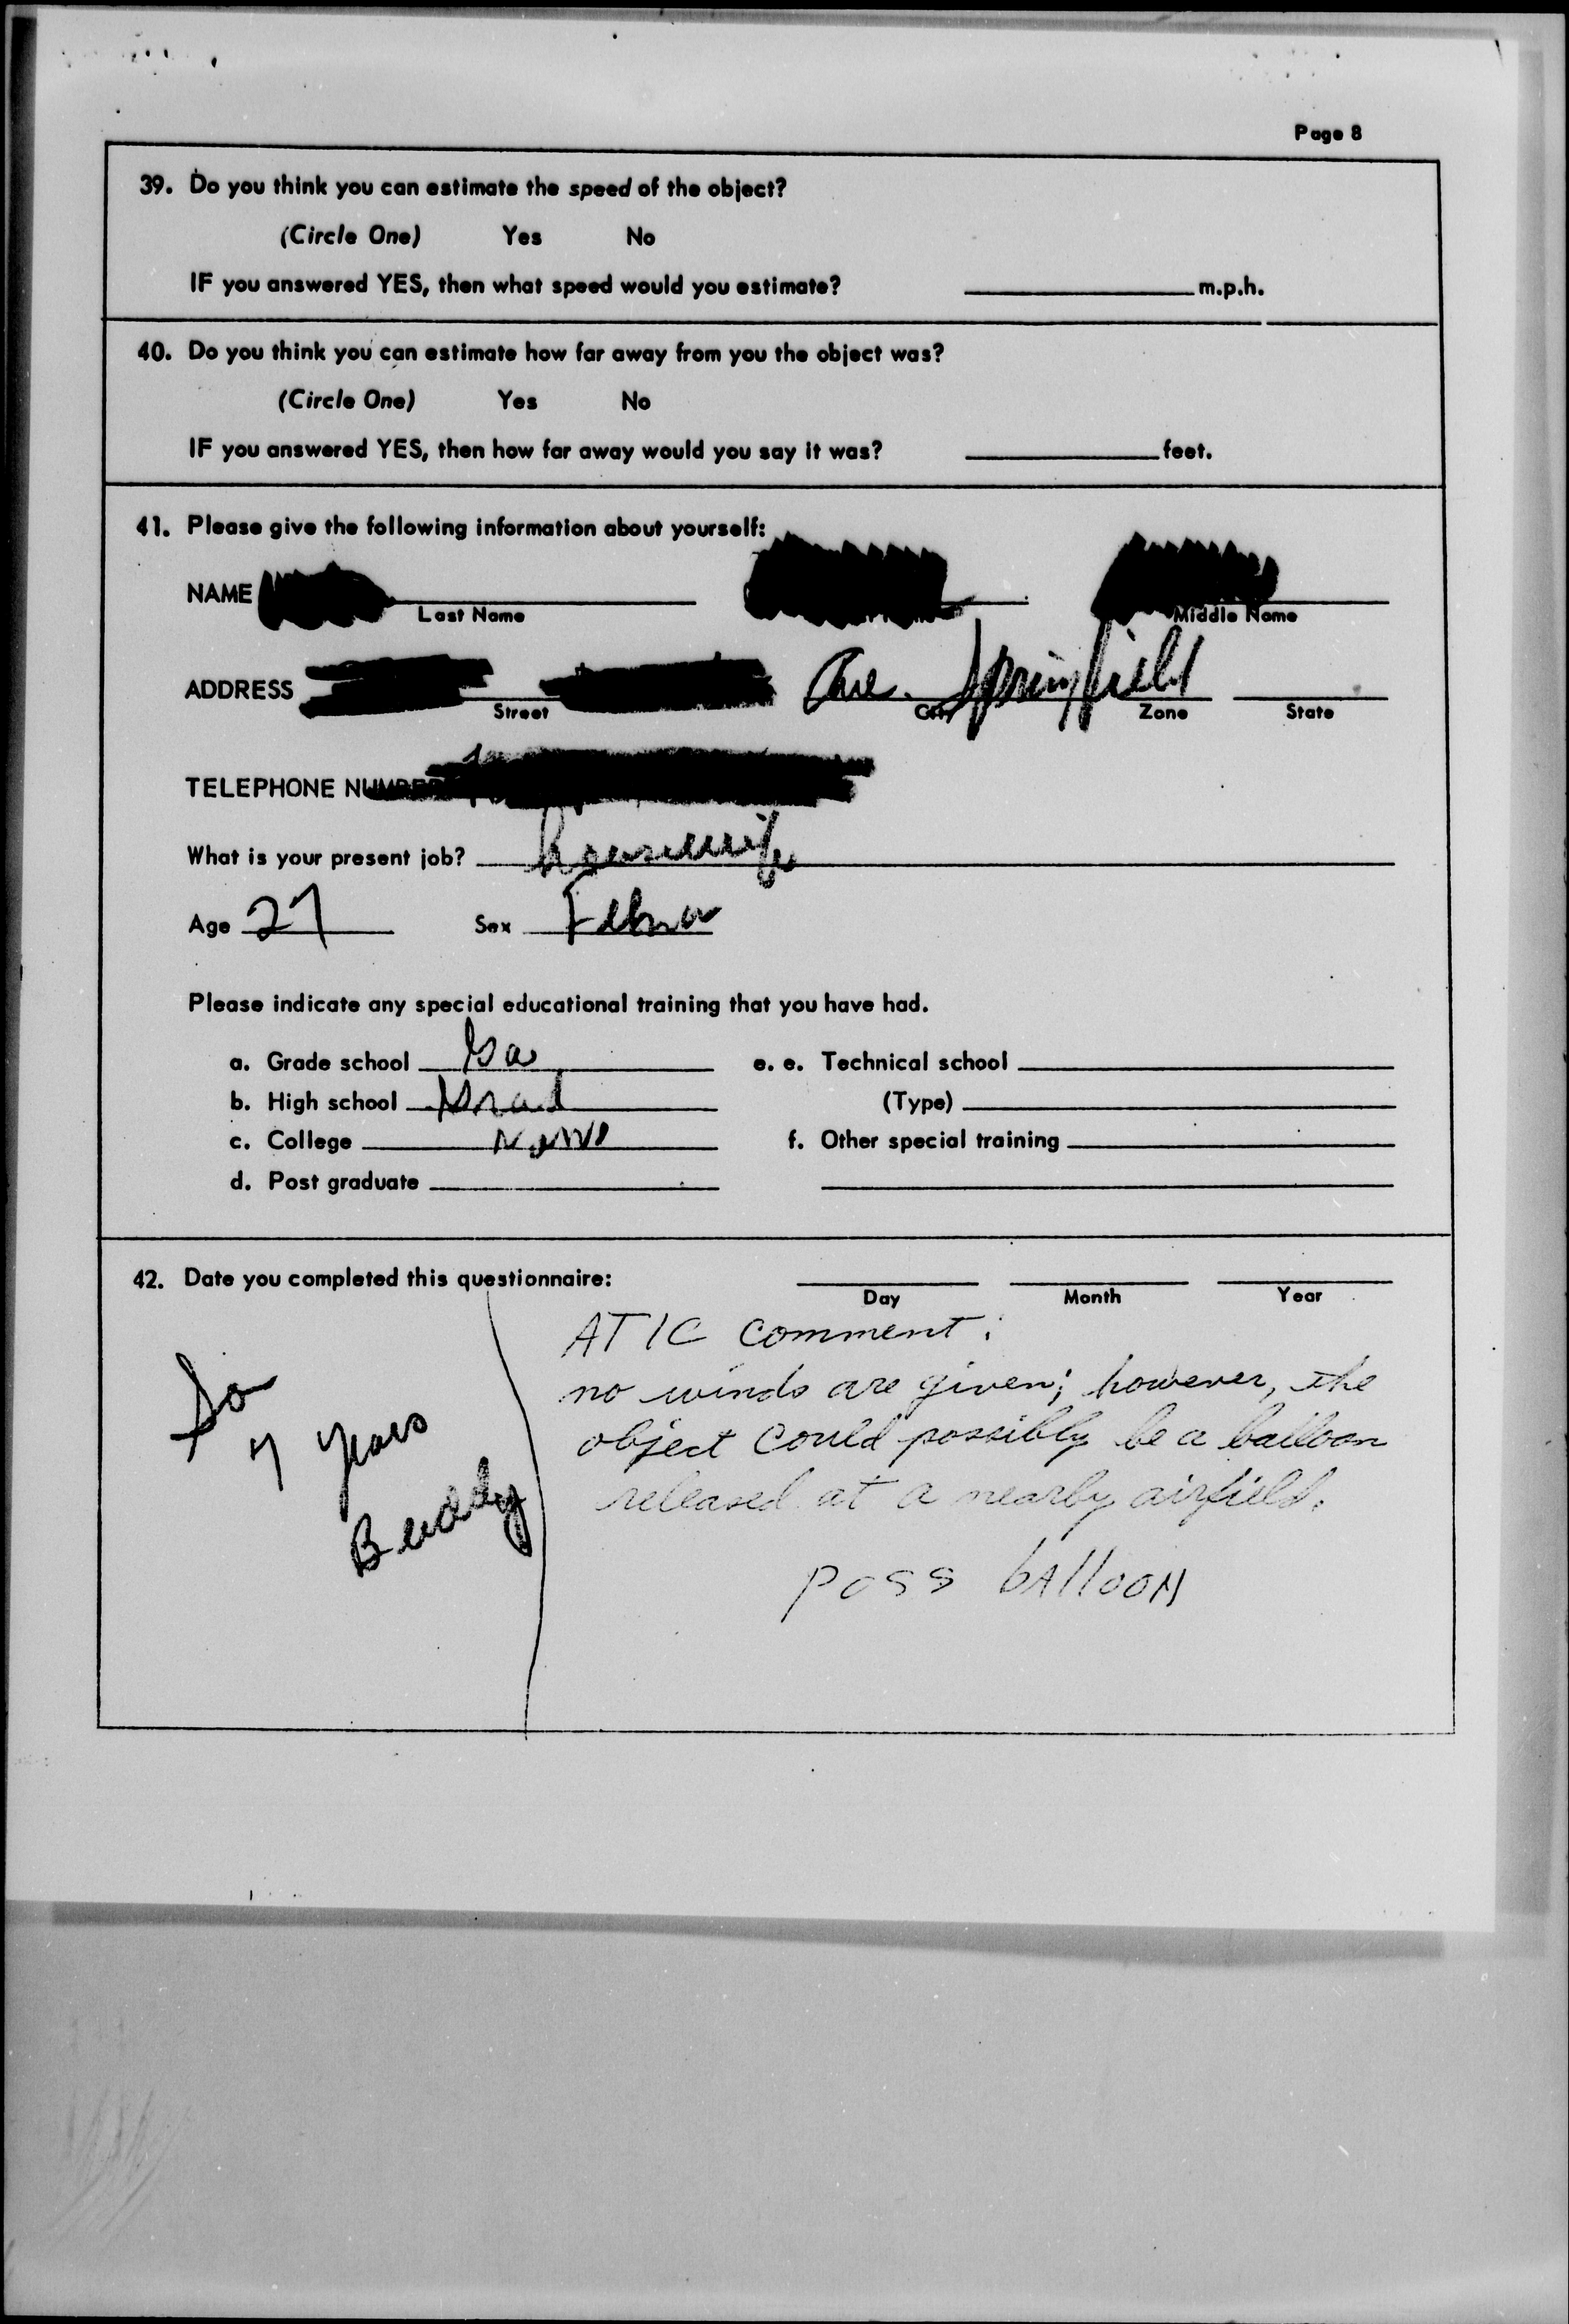 Page 8
39. Do you think you can estimate the speed of the object?
(Circle One) Yes No
IF you answered YES, then what speed would you estimate? m.p.h.
40. Do you think you can estimate how far away from you the object was?
(Circle One) Yes No
IF you answered YES, then how far away would you say it was? feet.
41. Please give the following information about yourself:
NAME
Last Name Middle Name
ADDRESS Ave. Springfield
Street City Zone State
TELEPHONE NUMBER
What is your present job? housewife
Age 27 Sex
Please indicate any special educational training that you have had.
a. Grade school e. e. Technical school
b. High school Grad (Type)
c. College None f. Other special training
d. Post graduate
42. Date you completed this questionnaire:
Day Month Year
ATIC comment:
no winds are given; however, the
object could possibly be a balloon
released at a nearby airfield.
poss bAlloon
7 years
Buddy